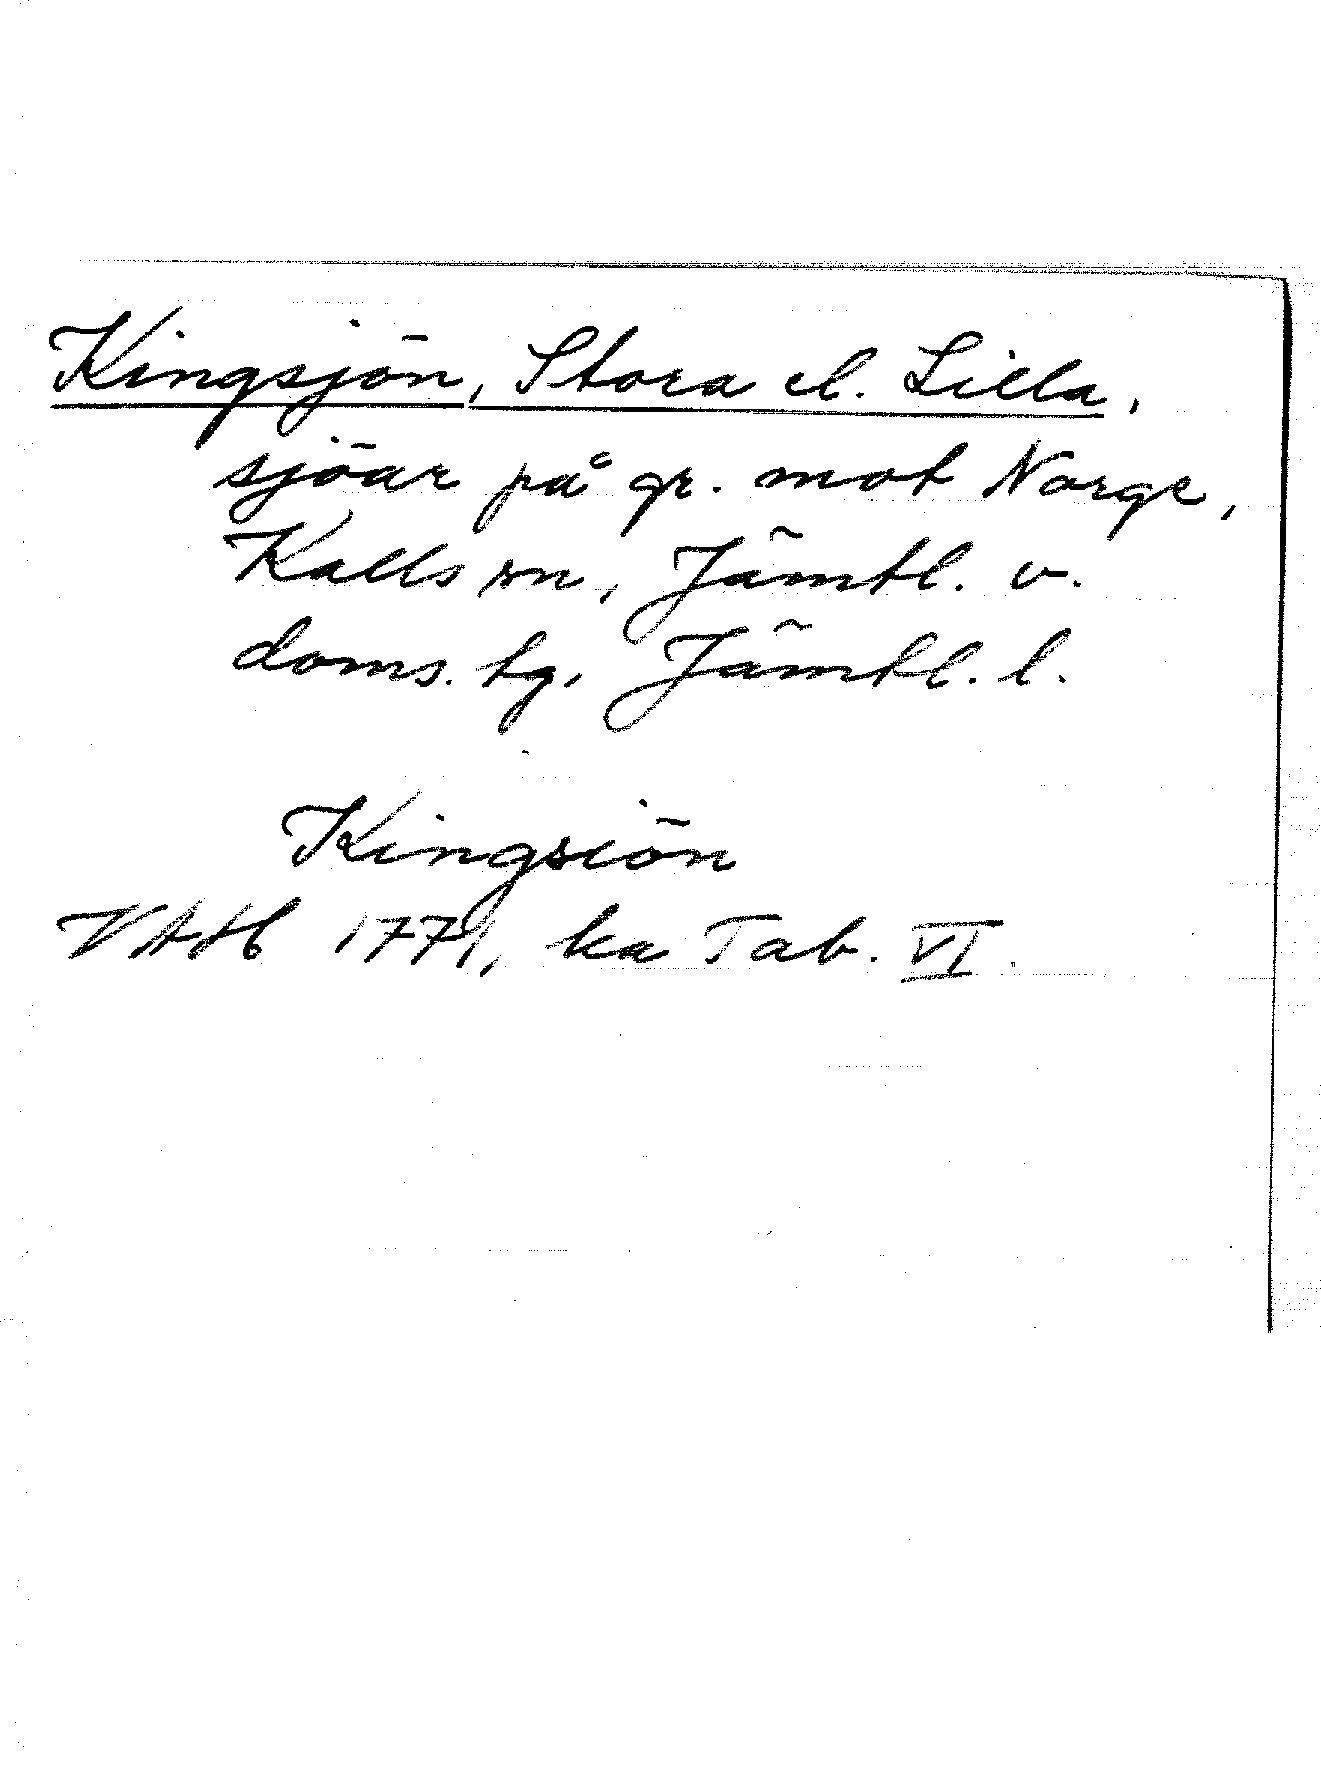 Kingsjön, Stora el. Lilla,
sjöar på gr. mot Norge,
Kalls sn, Jämtl. v.
doms. tg, Jämtl. l.
Kingsiön
VAH 1771, ka Tab. VI.